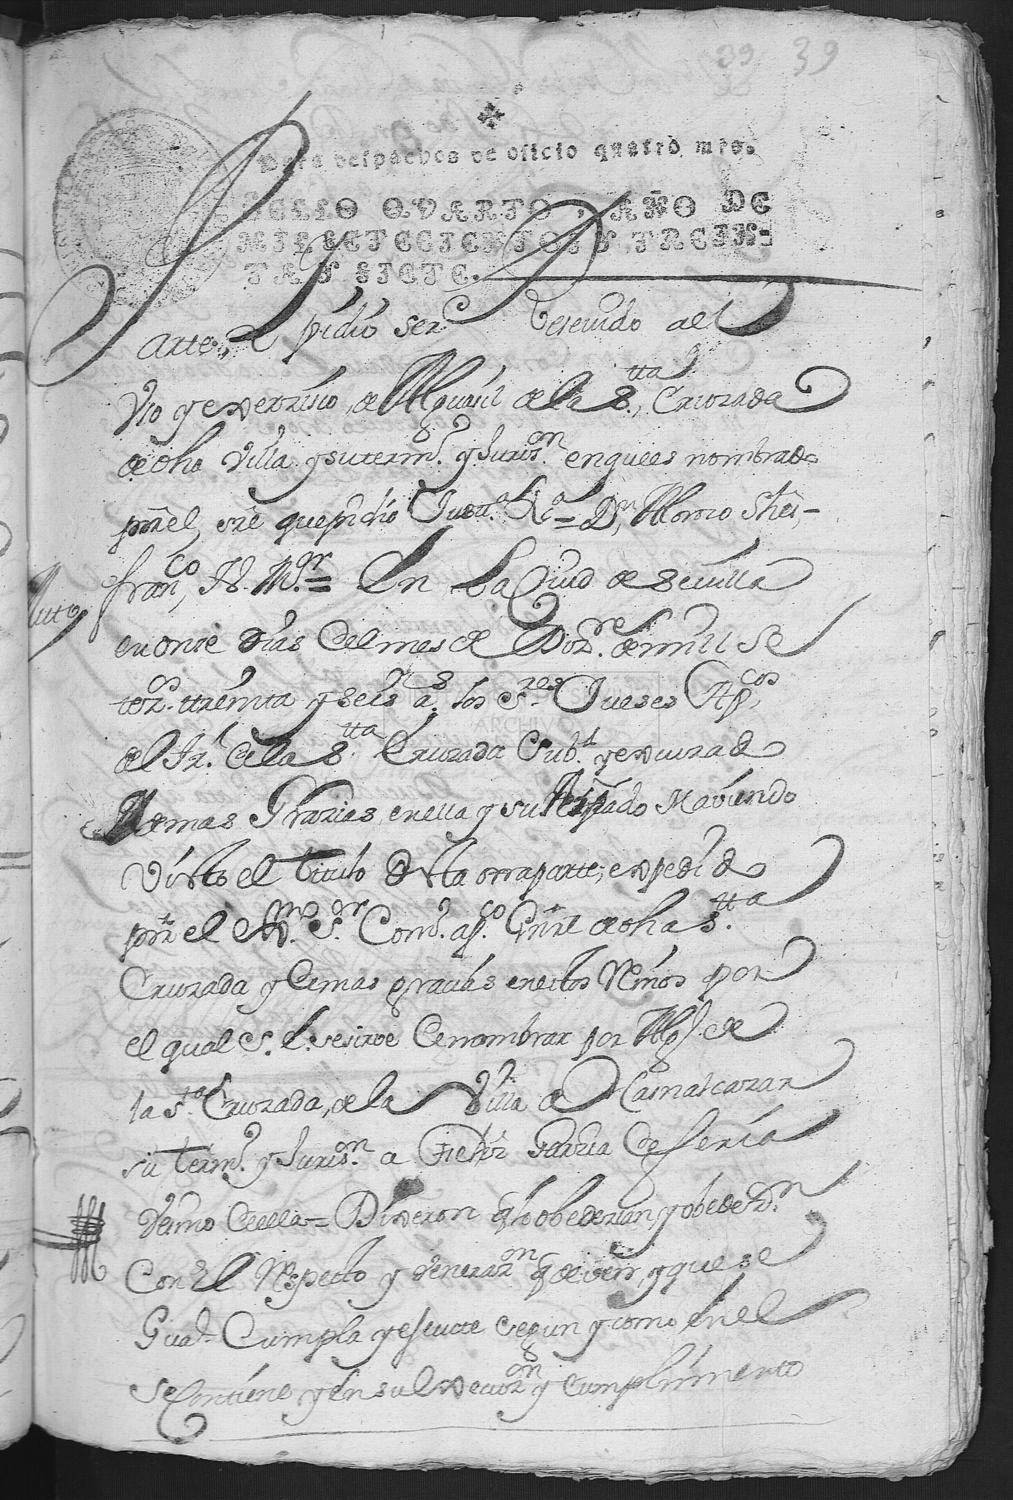 39 39
Para despachos de oficio quatro mrs.
SELLO QVARTO, AÑO DE
MIL SETECIENTOS Y TREIN-
TA Y SIETE.
Parte, pidio ser rreseuido al
Vso y exerzisio, de Alguasil de la Stta, Cruzada
de dha Villa y su termo. y Jurison. en que es nombrado
por el, sre que pidio Justta. Xa = Dn, Alonso Shes,-
Franco,
Auto
En La Ciud de Seuilla
en onse dias del mes de Dizre. de mill se
tecos. ttreinta y seis as. los Sres Jueses Appcos
del Trl. de la Stta Cruzada Subt. y exCruzada
demas Grasias, en ella y su Arzpado Hauiendo
Visto el Titulo desta otra parte, expedido
por el Yllmo. Sr. Como. appco Gnrl de dha Stta.
Cruzada y demas grasias en estos Reinos por
el qual S. I. se sirve de nombrar por Algl de
la Sta Cruzada, de la Villa de Castilleja
su Termo. y Jurison. a Garzia de Feria
Vesino de ella = Dixeron q lo obedesian, y obedezn.
Con el Respecto y Venerazon q deuen, y que se
Guade Cumpla y esecutte segun y como en el
Se Contiene y en su Execuzon y Cumplimento